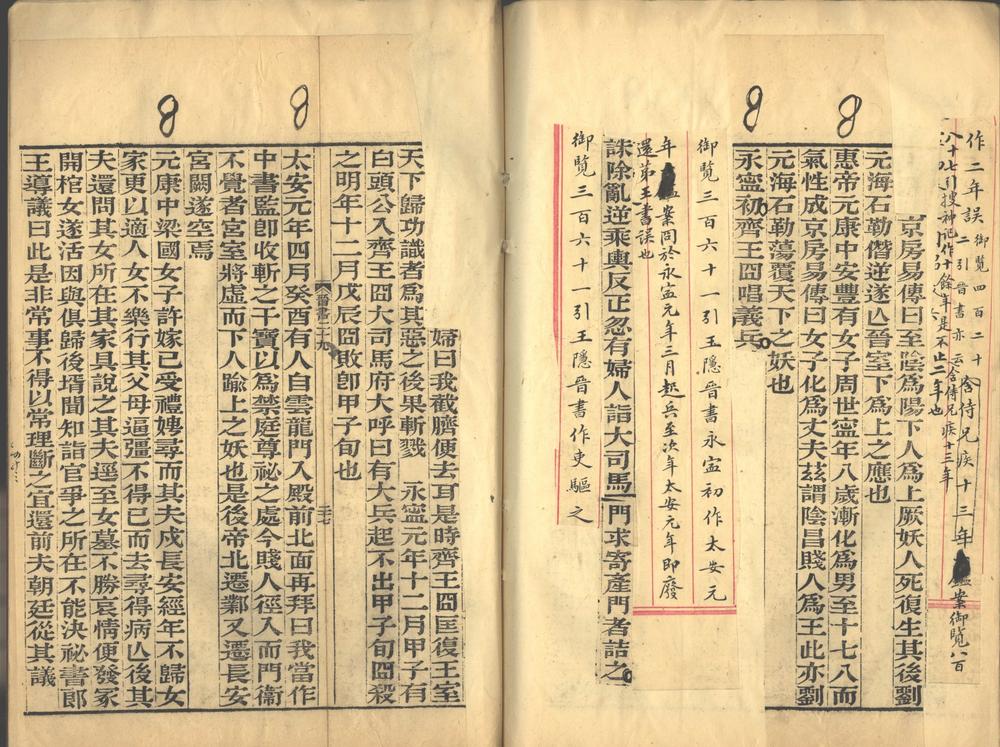 作二年誤御覽四百二十
八十七引搜神記作十餘年是不止二年也
含侍兄疾十三年
鑑案御覽八百
二引晉書亦云含侍兄疾十三年
京房易傳曰至陰爲陽下人爲上厥妖人死復生其後劉
元海石勒僭逆遂亾晉室下爲上之應也
惠帝元康中安豐有女子周世寍年八歲漸化爲男至十七八而
氣性成京房易傳曰女子化爲丈夫茲謂陰昌賤人爲王此亦劉
元海石勒蕩覆天下之妖也
永寍初齊王冏唱義兵
御覽三百六十一引王隱晉書永寍初作太安元
年
鑑案冏於永寍元年三月起兵至次年太安元年即廢
還第王書誤也
誅除亂逆乘輿反正忽有婦人詣大司馬門求寄產門者詰之
御覽三百六十一引王隱晉書作吏驅之
婦曰我截臍便去耳是時齊王冏匡復王室
天下歸功識者爲其惡之後果斬戮
永寍元年十二月甲子有
白頭公入齊王冏大司馬府大呼曰有大兵起不出甲子旬冏殺
之明年十二月戊辰冏敗卽甲子旬也
晉書二十九
二七
太安元年四月癸酉有人自雲龍門入殿前北面再拜曰我當作
中書監卽收斬之干寶以爲禁庭尊祕之處今賤人徑入而門衞
不覺者宮室將虛而下人踰上之妖也是後帝北遷鄴又遷長安
宮闕遂空焉
元康中梁國女子許嫁已受禮娉尋而其夫戍長安經年不歸女
家更以適人女不樂行其父母逼彊不得已而去尋得病亾後其
夫還問其女所在其家具說之其夫逕至女墓不勝哀情便發冢
開棺女遂活因與俱歸後壻聞知詣官爭之所在不能決祕書郞
王導議曰此是非常事不得以常理斷之宜還前夫朝廷從其議
8
8
8
8